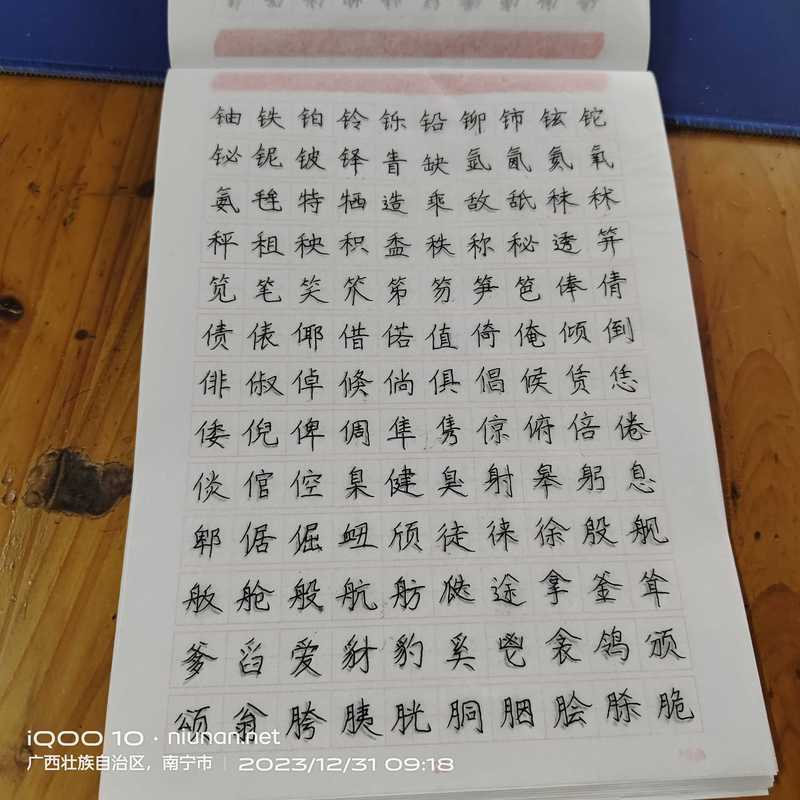 铀铁铂铃铄铅铆铈铉铊
铋铌铍铎眚缺氩氤氦氧
氨毪特牺造乘敌舐秣秫
秤租秧积盉秩称秘透笄
笕笔笑笊笫笏笋笆俸倩
债俵倻借偌值倚俺倾倒
俳俶倬倏倘俱倡候赁恁
倭倪俾倜隼隽倞俯倍倦
倓倌倥臬健臭射皋躬息
郫倨倔衄颀徒徕徐殷舰
舨舱般航舫瓞途拿釜耸
爹舀爱豺豹奚鬯衾鸽颁
颂翁胯胰胱胴胭脍脎脆
iQOO 10 · niunan.net
广西壮族自治区，南宁市 | 2023/12/31 09:18